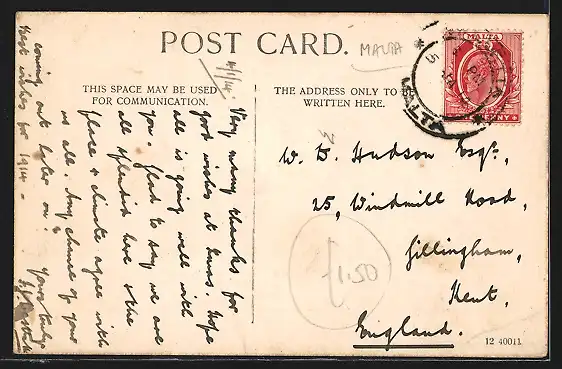 POST CARD.
MALTA
THIS SPACE MAY BE USED
FOR COMMUNICATION.
THE ADDRESS ONLY TO
WRITTEN HERE.
4/1/14.
Very many thanks for
good wishes at Xmas. Hope
all is going well with
you. Glad to say we are
all splendid here & the
place & climate agree with
us all. Any chance of you
coming out later on?
Best wishes for 1914 -
Yours truly
W. D. Hudson Esqr.,
25, Windmill Road,
Gillingham,
Kent,
England.
1.50
12 40011
MALTA
NNY
MALTA
5